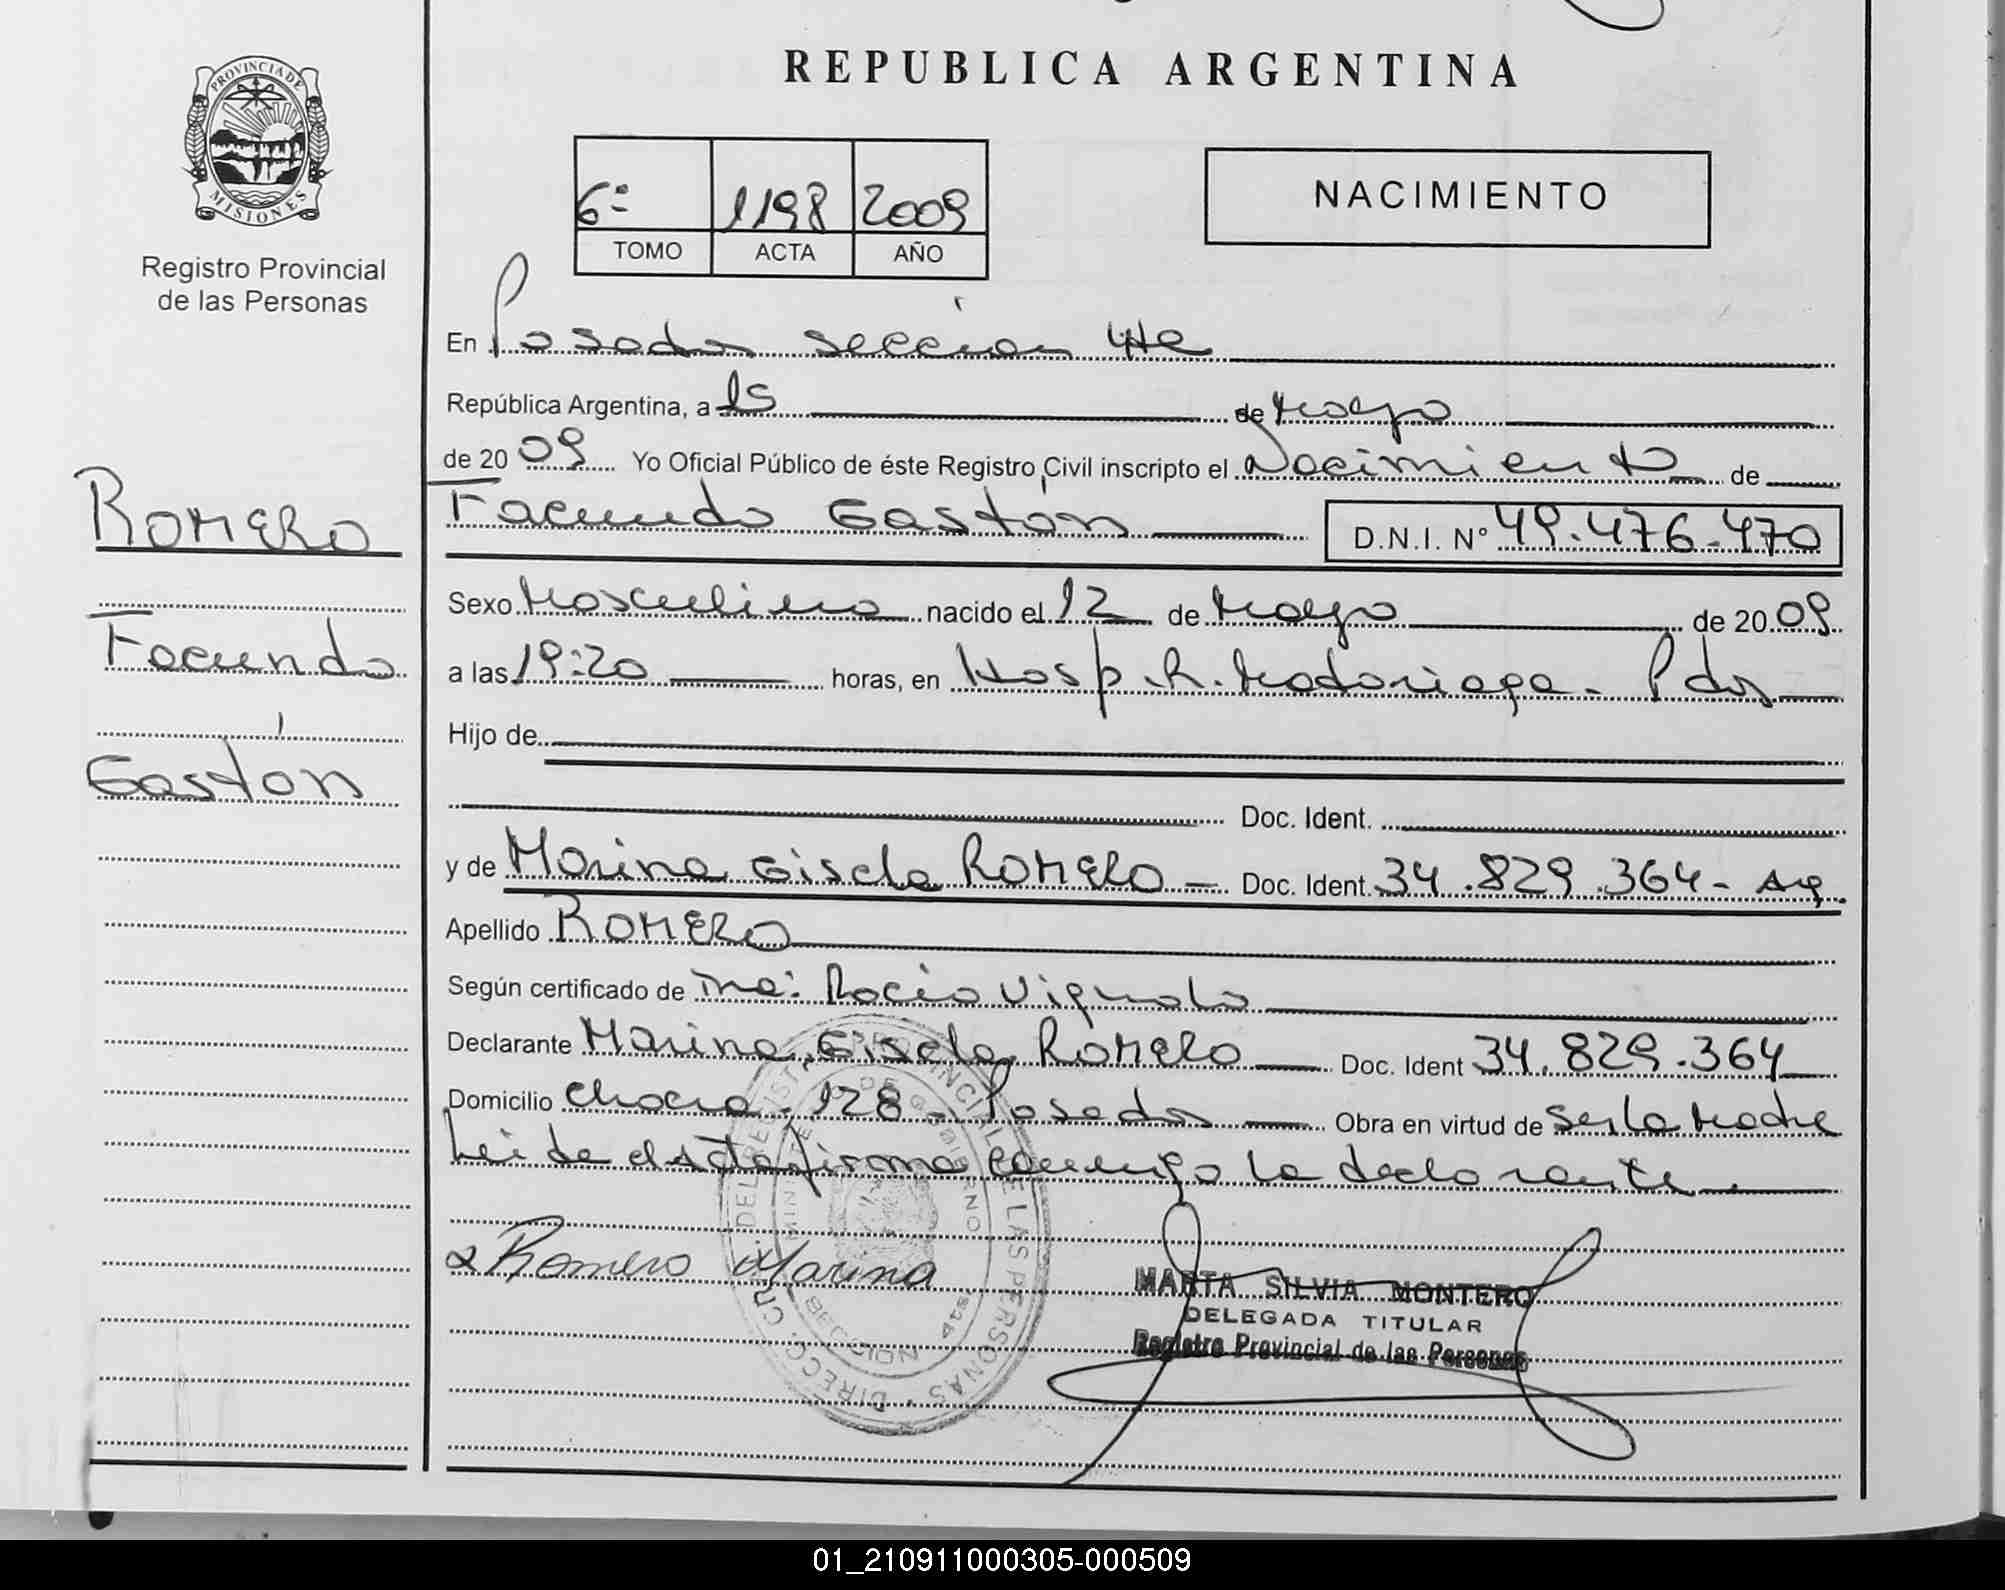 PROVINCIA DE
MISIONES
Registro Provincial
de las Personas
ROMERO
Facundo
Gastón
REPUBLICA ARGENTINA
6º 1198 2009
TOMO ACTA AÑO
NACIMIENTO
En Posadas sección 4ta
República Argentina, a 15 de Mayo
de 20 09 Yo Oficial Público de éste Registro Civil inscripto el Nacimiento de
Facundo Gastón D.N.I. Nº 49.476.470
Sexo Masculino nacido el 12 de Mayo de 20 09
a las 19:20 horas, en Hosp. R. Madariaga - Pdas
Hijo de
Doc. Ident.
y de Marina Gisela ROMERO - Doc. Ident. 34.829.364 - Arg.
Apellido ROMERO
Según certificado de Rocio Vignola
Declarante Marina Gisela Romero Doc. Ident 34.829.364
Domicilio Chacra - 128 - Posadas Obra en virtud de Ser la Madre
Leida el Acta firma conmigo la declarante
Romero Marina
MARTA SILVIA MONTERO
DELEGADA TITULAR
Registro Provincial de las Personas
01_210911000305-000509